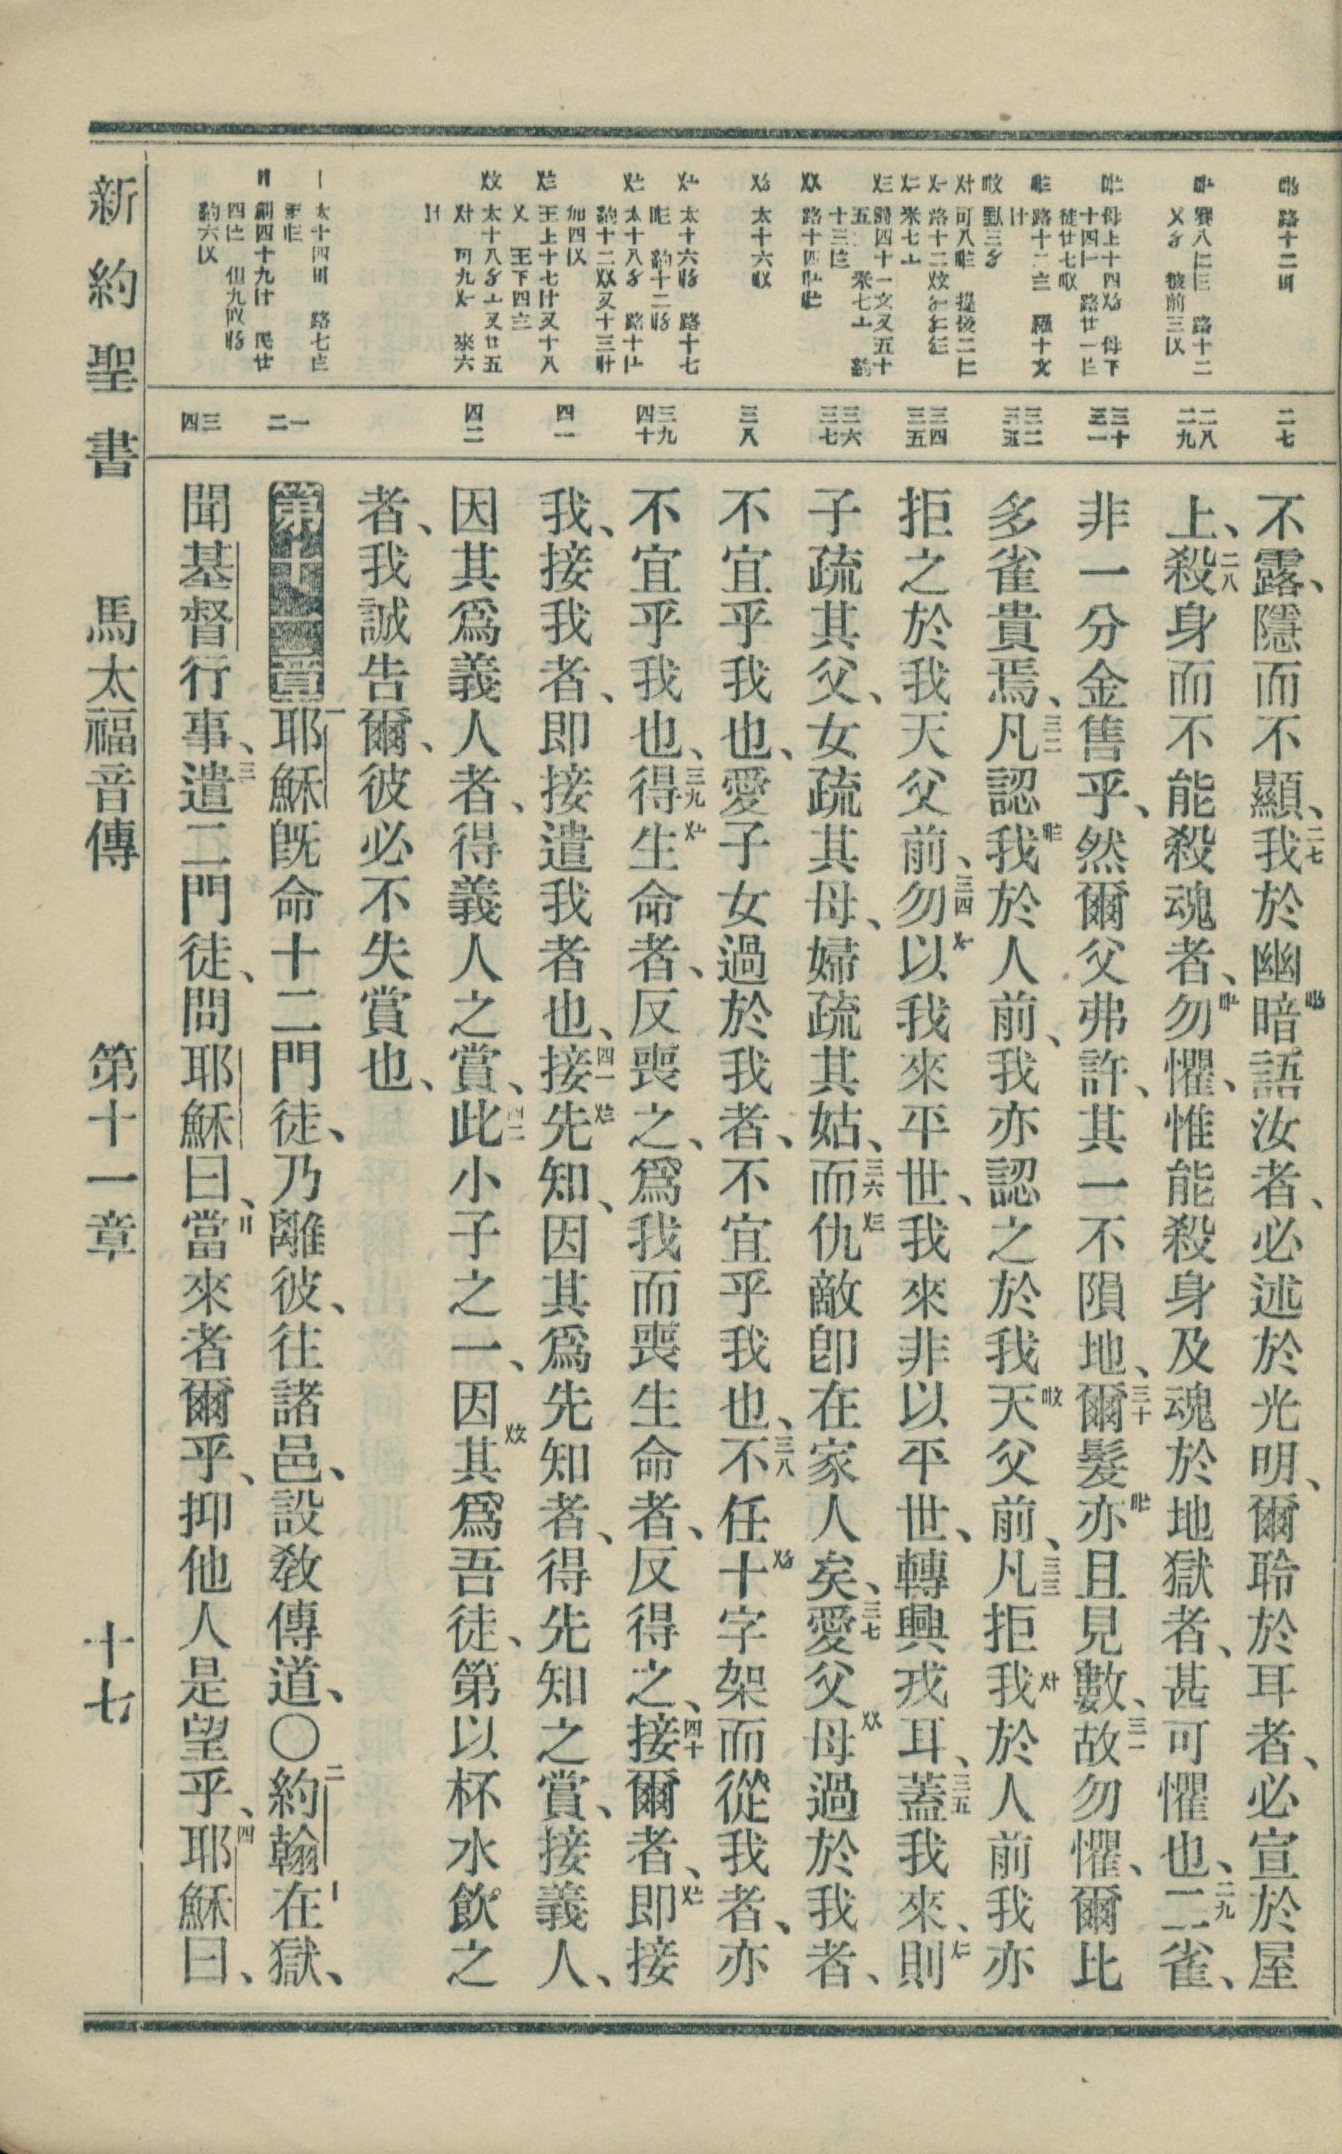 不露、隱而不顯、二七我於幽暗語汝者、必述於光明、爾聆於耳者、必宣於屋
上、二八殺身而不能殺魂者、勿懼、惟能殺身及魂於地獄者、甚可懼也、二九二雀、
非一分金售乎、然爾父弗許、其一不隕地、三十爾髮亦且見數、三一故勿懼、爾比
多雀貴焉、三二凡認我於人前、我亦認之於我天父前、三三凡拒我於人前我亦
拒之於我天父前、三四勿以我來平世、我來非以平世、轉興戎耳、三五蓋我來、則
子疏其父、女疏其母、婦疏其姑、三六而仇敵卽在家人矣、三七愛父母過於我者、
不宜乎我也、愛子女過於我者、不宜乎我也、三八不任十字架而從我者、亦
不宜乎我也、三九得生命者、反喪之、爲我而喪生命者、反得之、四十接爾者、即接
我、接我者、即接遣我者也、四一接先知、因其爲先知者、得先知之賞、接義人、
因其爲義人者、得義人之賞、四二此小子之一、因其爲吾徒、第以杯水飲之
者、我誠告爾、彼必不失賞也、
第十一章 一耶穌旣命十二門徒、乃離彼、往諸邑、設敎傳道、〇二約翰在獄、
聞基督行事、三遣二門徒、問耶穌曰、當來者爾乎、抑他人是望乎、四耶穌曰、
新約聖書 馬太福音傳 第十一章 十七